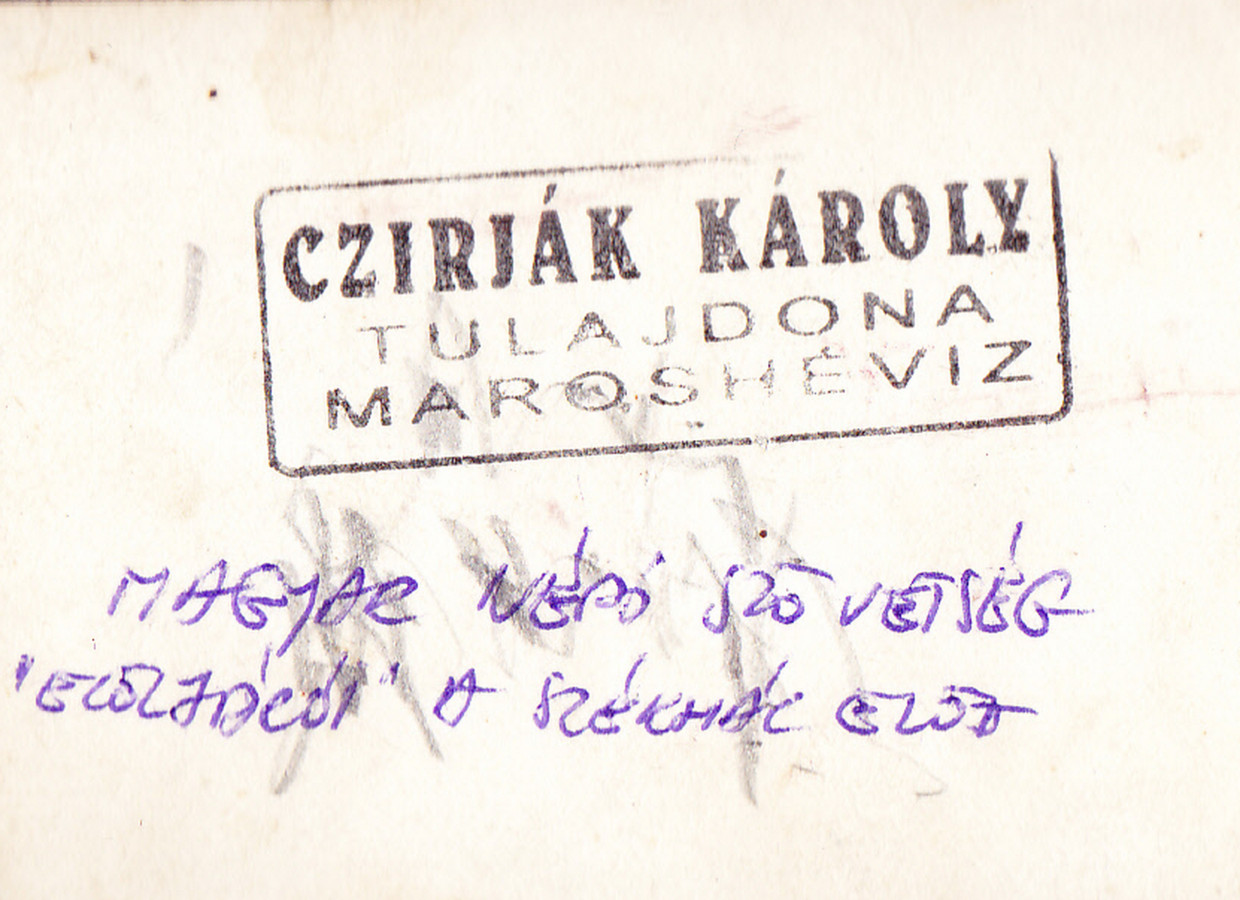 CZIRJÁK KÁROLY
TULAJDONA
MAROSHÉVIZ
MAGYAR NÉPI SZÖVETSÉG
"ELÖLJÁRÓI" A SZÉKHÁZ ELŐTT